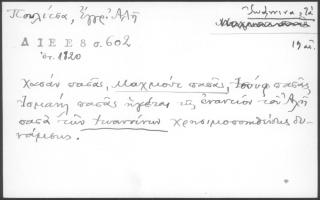 Πουλίτσα, Ἐγγρ. Ἀλῆ
Ἰωάννινα,
Δ Ι Ε Ε 8 σ. 602
ἔτ. 1820
19 αἰ.
Χασάν πασᾶς, Μαχμούτ πασᾶς, Ἰσούφ πασᾶς,
Ἰσμαήλ πασᾶς ἡγέται τῆς ἐναντίον τοῦ Ἀλῆ
πασᾶ τῶν Ἰωαννίνων χρησιμοποιηθείσης δυ-
νάμεως.